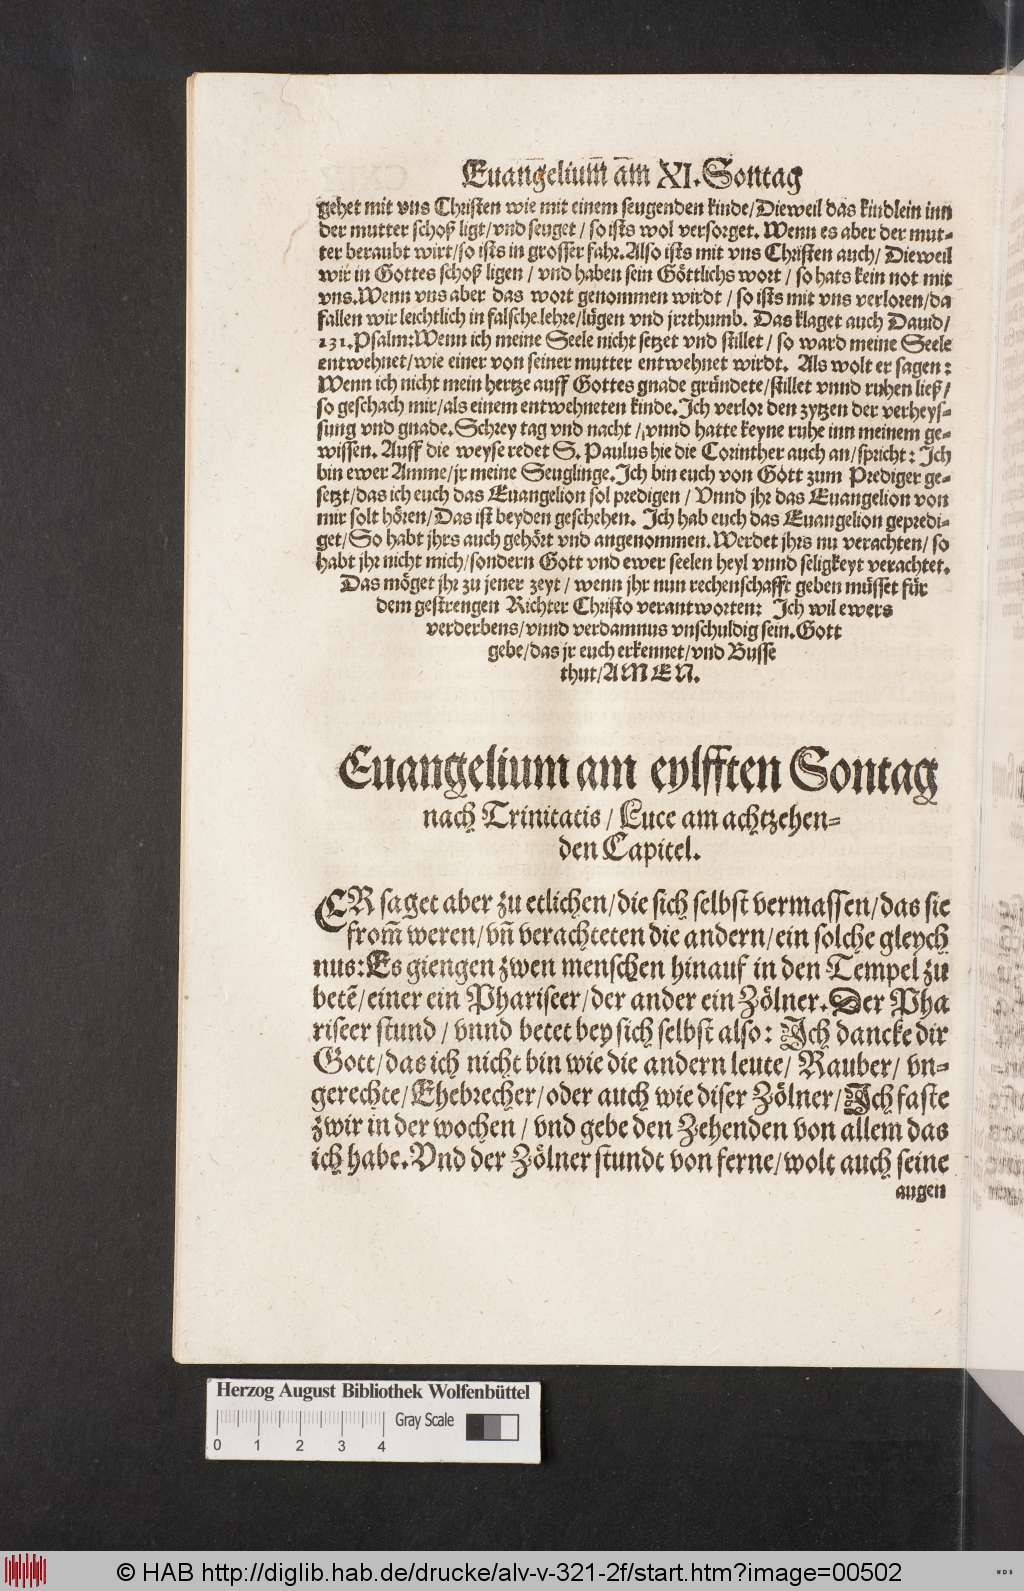 Euangelium̄ am̄ XI. Sontag
gehet mit vns Christen wie mit einem seugenden kinde/Dieweil das kindlein inn
der mutter schoß ligt/vnd seuget / so ists wol versorget. Wenn es aber der mut-
ter beraubt wirt/so ists in grosser fahr. Also ists mit vns Christen auch/ Dieweil
wir in Gottes schoß ligen / vnd haben sein Göttlichs wort / so hats kein not mit
vns. Wenn vns aber das wort genommen wirdt / so ists mit vns verloren/da
fallen wir leichtlich in falsche lehre/lügen vnd jrrthumb. Das klaget auch Dauid/
131. Psalm: Wenn ich meine Seele nicht setzet vnd stillet / so ward meine Seele
entwehnet/wie einer von seiner mutter entwehnet wirdt. Als wolt er sagen:
Wenn ich nicht mein hertze auff Gottes gnade gründete/stillet vnnd ruhen ließ/
so geschach mir/als einem entwehneten kinde. Ich verlor den zytzen der verheys-
sung vnd gnade. Schrey tag vnd nacht / vnnd hatte keyne ruhe inn meinem ge-
wissen. Auff die weyse redet S. Paulus hie die Corinther auch an/spricht: Ich
bin ewer Amme/jr meine Seuglinge. Ich bin euch von Gott zum Prediger ge-
setzt/das ich euch das Euangelion sol predigen / Vnnd jhr das Euangelion von
mir solt hören/Das ist beyden geschehen. Ich hab euch das Euangelion gepredi-
get/So habt jhrs auch gehört vnd angenommen. Werdet jhrs nu verachten/ so
habt jhr nicht mich/sondern Gott vnd ewer seelen heyl vnnd seligkeyt verachtet.
Das möget jhr zu jener zeyt / wenn jhr nun rechenschafft geben müsset für
dem gestrengen Richter Christo verantworten: Ich wil ewers
verderbens/vnnd verdamnus vnschuldig sein. Gott
gebe/das jr euch erkennet/vnd Busse
thut/AMEN.
Euangelium am eylfften Sontag
nach Trinitatis / Luce am achtzehen-
den Capitel.
ER saget aber zu etlichen/die sich selbst vermassen/das sie
from̄ weren/vn̄ verachteten die andern/ein solche gleych
nus: Es giengen zwen menschen hinauf in den Tempel zu
betē/einer ein Phariseer/der ander ein Zölner. Der Pha
riseer stund / vnnd betet bey sich selbst also: Ich dancke dir
Gott/das ich nicht bin wie die andern leute/ Rauber/ vn-
gerechte/Ehebrecher/oder auch wie diser Zölner/Ich faste
zwir in der wochen / vnd gebe den Zehenden von allem das
ich habe. Vnd der Zölner stundt von ferne/wolt auch seine
augen
Herzog August Bibliothek Wolfenbüttel
0 1 2 3 4 Gray Scale
© HAB http://diglib.hab.de/drucke/alv-v-321-2f/start.htm?image=00502